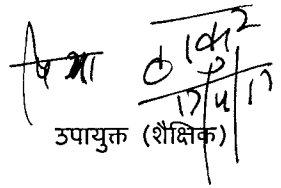 ठाकुर
17/4/17
उपायुक्त (शैक्षिक)